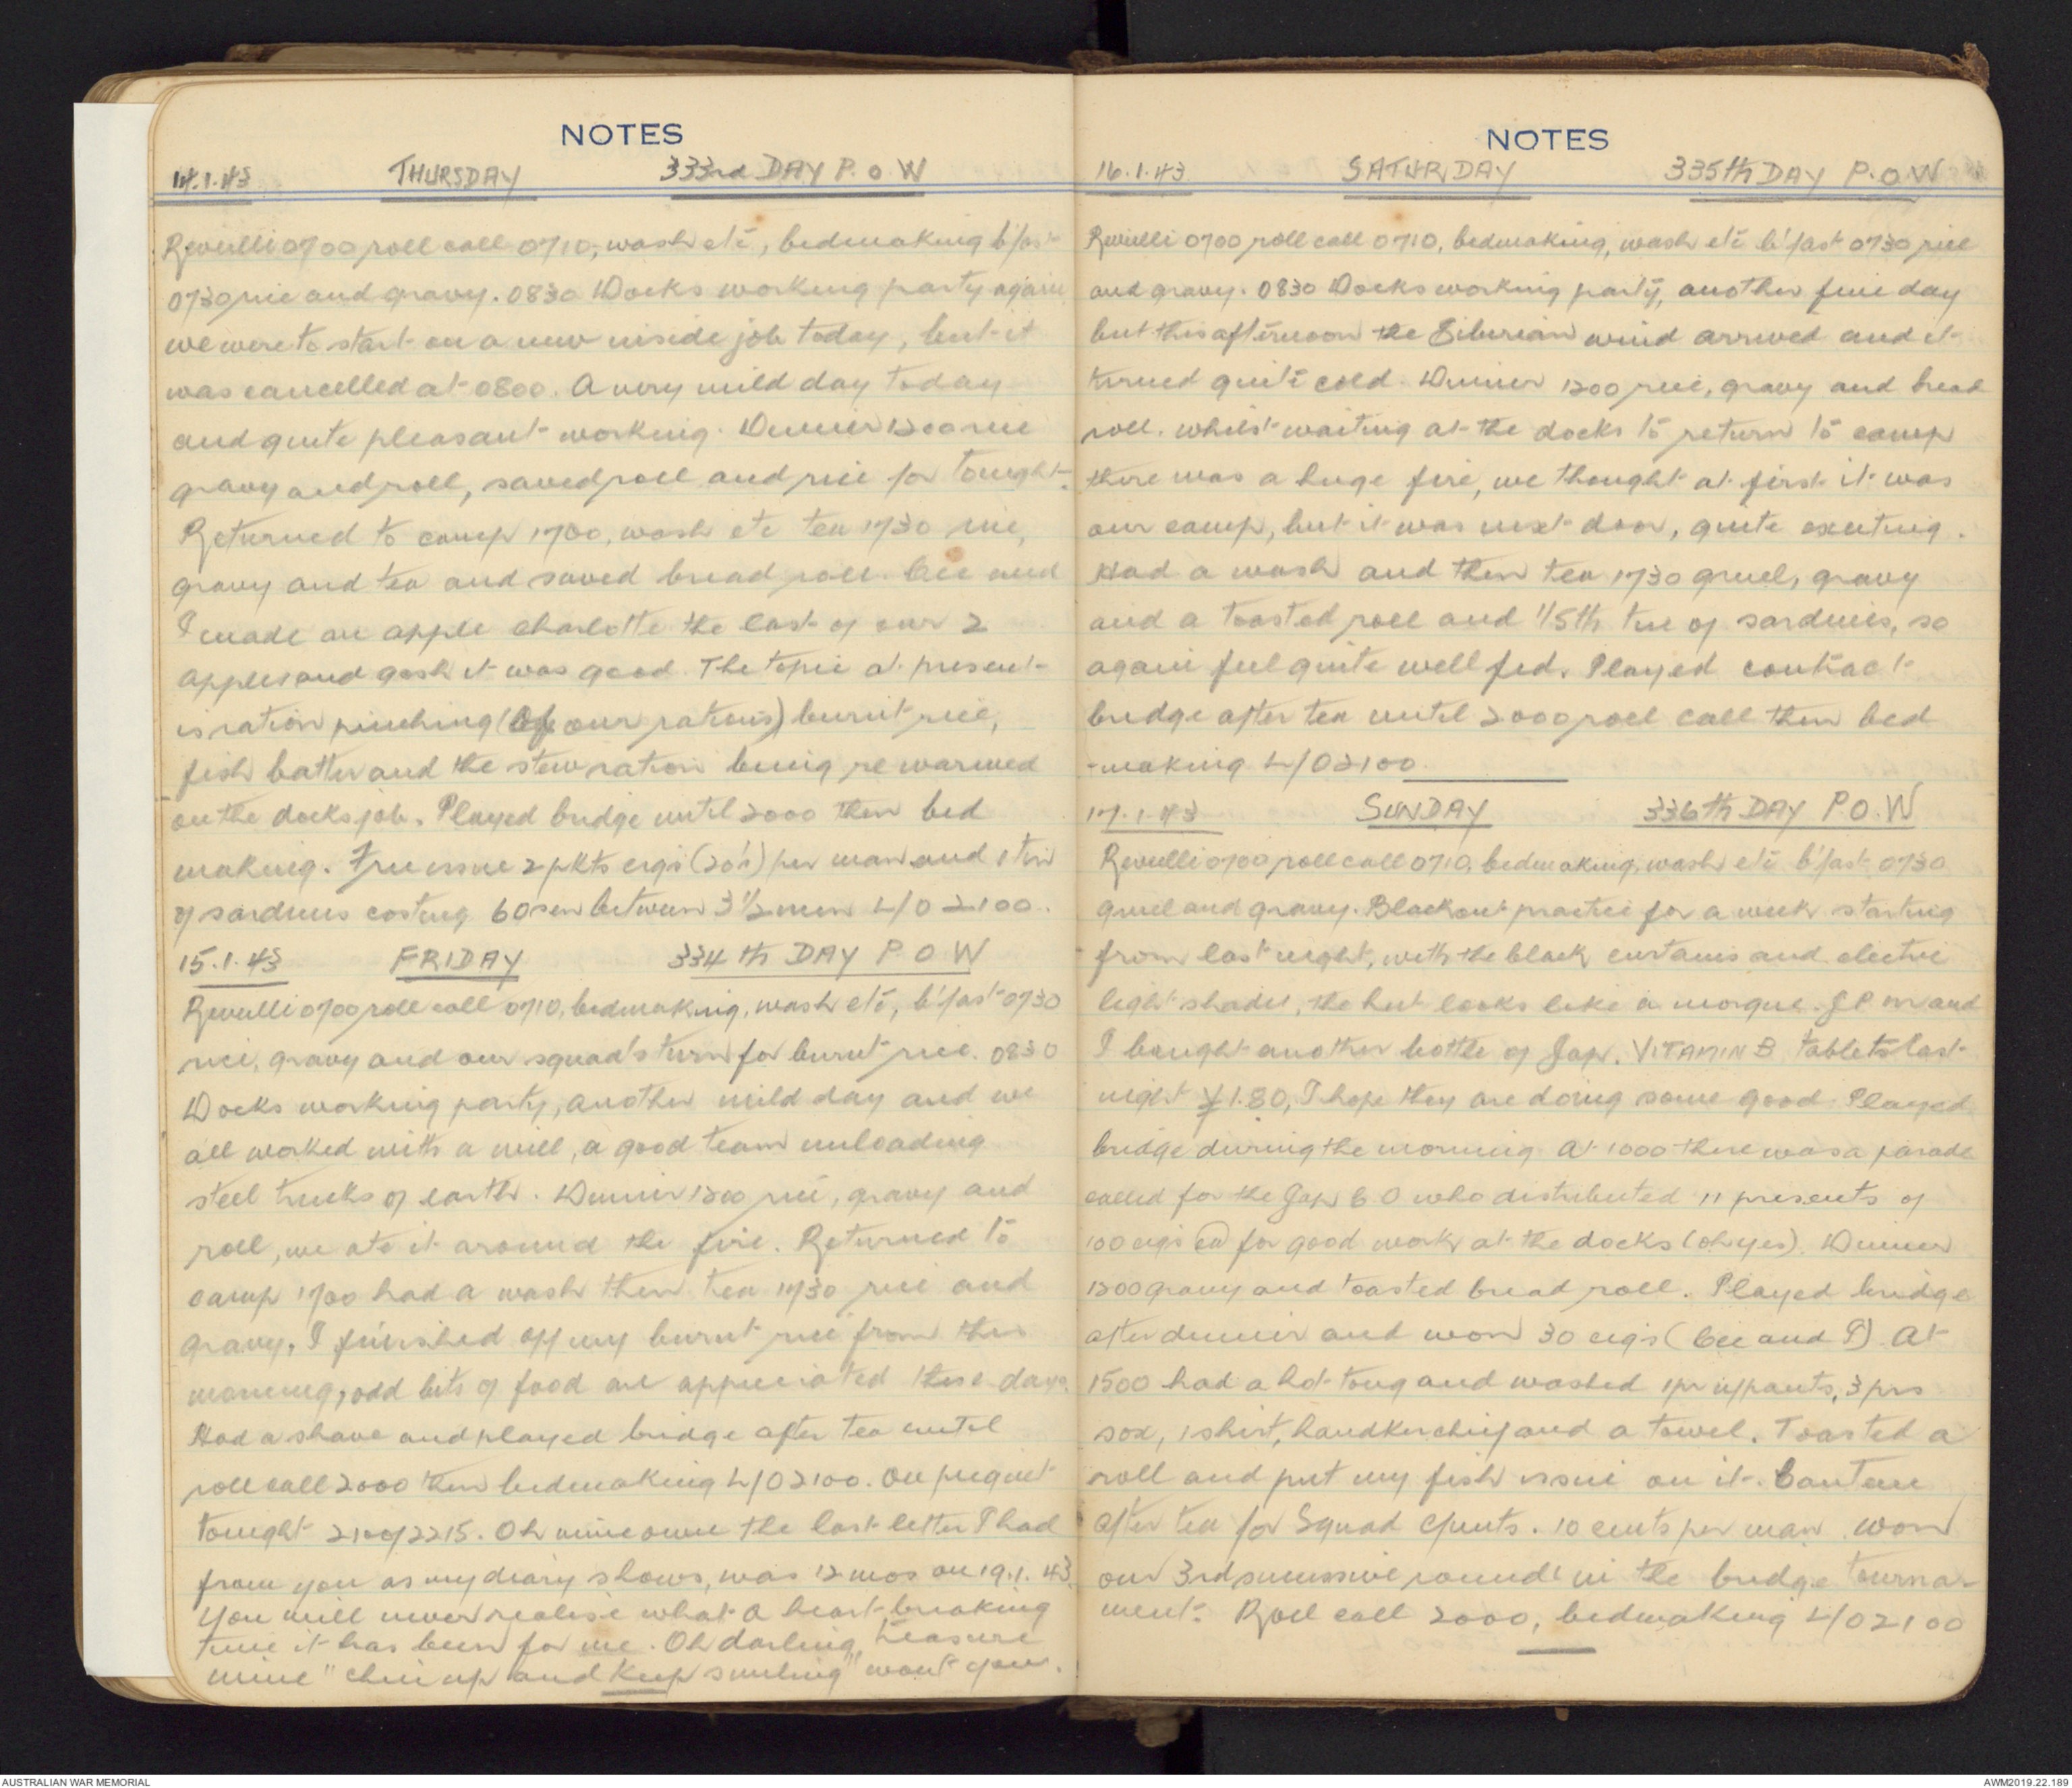 NOTES
14.1.43 THURSDAY 333rd DAY P.O.W
Reveilli 0700 roll call 0710, wash etc, bedmaking b'fast
0730 rice and gravy. 0830 Docks working party again
we were to start on a new inside job today, but it
was cancelled at 0800. A very mild day today
and quite pleasant working. Dinner 1200 rice
gravy and roll, saved roll and rice for tonight.
Returned to camp 1700, wash etc tea 1730 rice,
gravy and tea and saved bread roll. Cec and
I made an apple charlotte the last of our 2
apples and gosh it was good. The topic at present
is ration pinching (Of our rations) burnt rice,
fish batter and the stew ration being re warmed
on the docks job. Played bridge until 2000 then bed
making. Free issue 2 pkts cigs (20's) per man and 1 tin
of sardines costing 60 sen between 3 1/2 men L/O 2100.
15.1.43 FRIDAY 334th DAY P O W
Reveilli 0700 roll call 0710, bedmaking, wash etc, b'fast 0730
rice, gravy and our squad's turn for burnt rice. 0830
Docks working party, another mild day and we
all worked with a will, a good team unloading
steel trucks of earth. Dinner 1200 rice, gravy and
roll, we ate it around the fire. Returned to
camp 1700 had a wash then tea 1730 rice and
gravy, I finished off my burnt rice from this
morning, odd bits of food are appreciated these days.
Had a shave and played bridge after tea until
roll call 2000 then bedmaking L/O 2100. On picquet
tonight 2100/2215. Oh mine own the last letter I had
from you as my diary shows, was 12 mos on 19.1.43.
You will never realise what a heart-breaking
time it has been for me. Oh darling, treasure
mine "chin up and keep smiling" wont you.
NOTES
16.1.43 SATURDAY 335th DAY P.O.W
Reveilli 0700 roll call 0710, bedmaking, wash etc b'fast 0730 rice
and gravy. 0830 Docks working party, another fine day
but this afternoon the Siberian wind arrived and it
turned quite cold. Dinner 1200 rice, gravy and bread
roll. whilst waiting at the docks to return to camp
there was a huge fire, we thought at first it was
our camp, but it was next door, quite exciting.
Had a wash and then tea 1730 gruel, gravy
and a toasted roll and 1/5th tin of sardines, so
again feel quite well fed. Played contract
bridge after tea until 2000 roll call then bed
-making L/O 2100
17.1.43 SUNDAY 336th DAY P.O.W
Reveilli 0700 roll call 0710, bedmaking, wash etc b'fast 0730
gruel and gravy. Blackout practice for a week starting
from last night, with the black curtains and electric
light shades, the hut looks like a morgue. J.P.M and
I bought another bottle of Jap. VITAMIN B tablets last
night ¥1.80, I hope they are doing some good. Played
bridge during the morning. At 1000 there was a parade
called for the Jap C O who distributed 11 presents of
100 cigs ea for good work at the docks (oh yes). Dinner
1200 gravy and toasted bread roll. Played bridge
after dinner and won 30 cigs (Cec and I) At
1500 had a hot tong and washed 1 pr u/pants, 3 prs
sox, 1 shirt, handkerchief and a towel. Toasted a
roll and put my fish issue on it. Canteen
after tea for Squad c/unts. 10 cents per man. won
our 3rd successive round in the bridge tourna-
ment. Roll call 2000, bedmaking L/O 2100
AUSTRALIAN WAR MEMORIAL
AWM2019.22.189